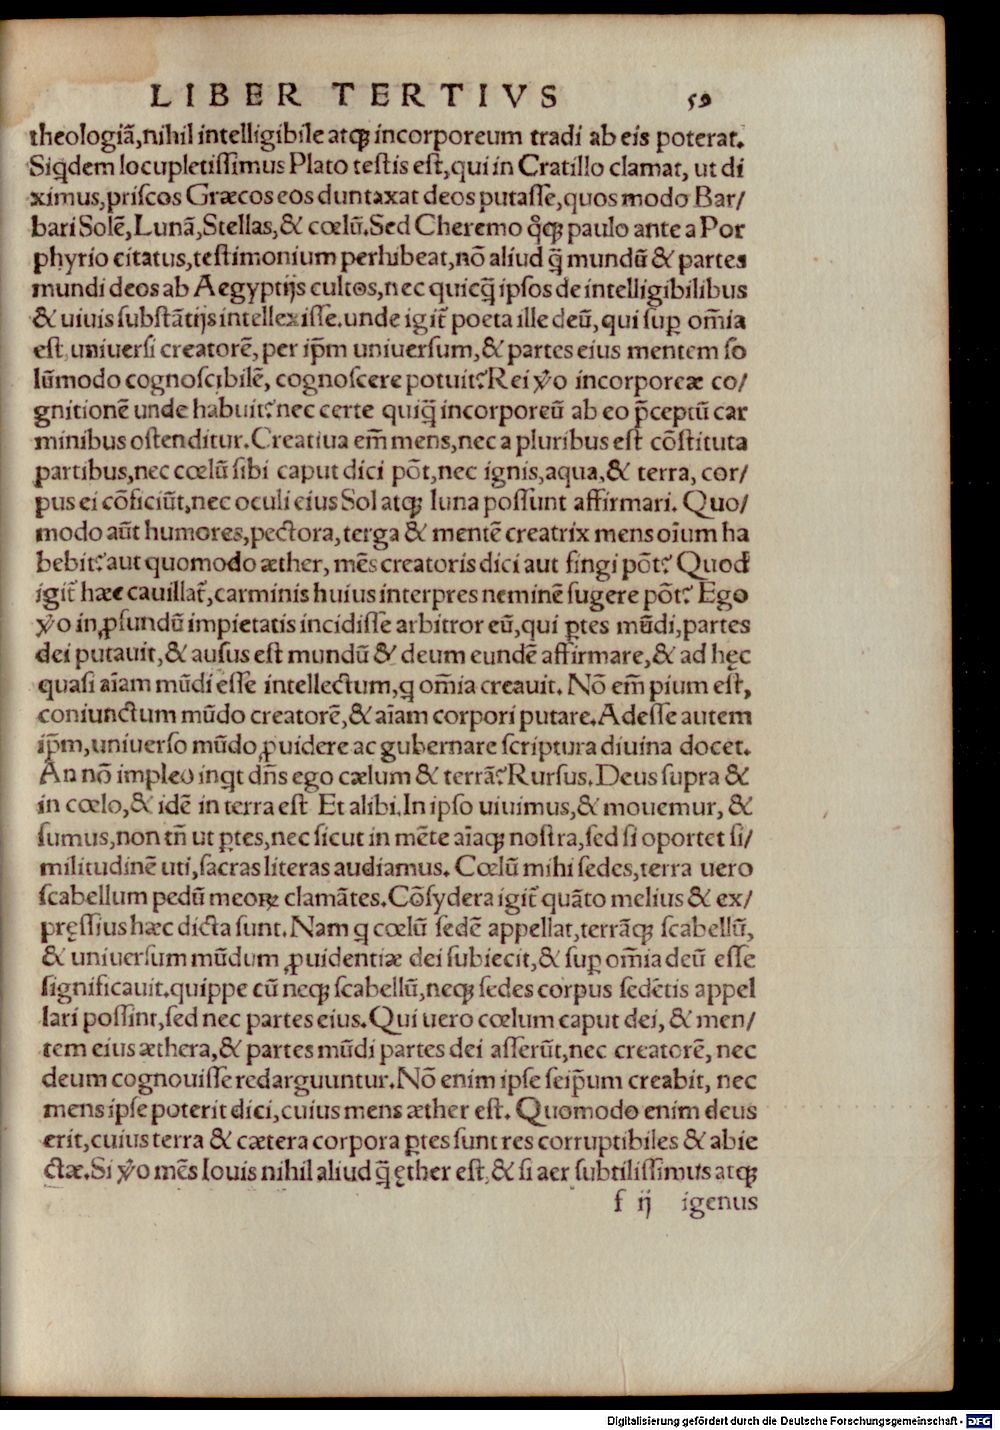 LIBER TERTIVS 59
theologiã,nihil intelligibile atqꝫ incorporeum tradi ab eis poterat.
Siqdem locupletissimus Plato testis est,qui in Cratillo clamat, ut di
ximus,priscos Græcos eos duntaxat deos putasse,quos modo Bar/
bari Solẽ,Lunã,Stellas,& cœlũ.Sed Cheremo qͦqꝫ paulo ante a Por
phyrio citatus,testimonium perhibeat,nõ aliud q̃ mundũ & partes
mundi deos ab Aegyptijs cultos,nec quicq̃ ipsos de intelligibilibus
& uiuis substãtijs intellexisse.unde igit̃ poeta ille deũ,qui suꝑ om̃ia
est,uniuersi creatorẽ,per ip̃m uniuersum,& partes eius mentem so
lũmodo cognoscibilẽ, cognoscere potuit?Rei ỽo incorporeæ co/
gnitionẽ unde habuit?nec certe quiq̃ incorporeũ ab eo p̃ceptũ car
minibus ostenditur.Creatiua em̃ mens,nec a pluribus est cõstituta
partibus,nec cœlũ sibi caput dici põt,nec ignis,aqua,& terra, cor/
pus ei cõficiũt,nec oculi eius Sol atqꝫ luna possunt affirmari. Quo/
modo aũt humores,pectora,terga & mentẽ creatrix mens oĩum ha
bebit?aut quomodo æther, mẽs creatoris dici aut fingi põt? Quod
igit̃ hæc cauillat̃,carminis huius interpres neminẽ fugere põt? Ego
ỽo in ꝓfundũ impietatis incidisse arbitror eũ,qui ꝑtes mũdi,partes
dei putauit,& ausus est mundũ & deum eundẽ affirmare,& ad hęc
quasi aĩam mũdi esse intellectum,q om̃ia creauit. Nõ em̃ pium est,
coniunctum mũdo creatorẽ,& aĩam corpori putare.Adesse autem
ip̃m,uniuerso mũdo ꝓuidere ac gubernare scriptura diuina docet.
An nõ impleo inqt dñs ego cælum & terrã?Rursus.Deus supra &
in cœlo,& idẽ in terra est Et alibi.In ipso uiuimus,& mouemur, &
sumus,non tñ ut ꝑtes,nec sicut in mẽte aĩaqꝫ nostra,sed si oportet si/
militudinẽ uti,sacras literas audiamus. Cœlũ mihi sedes,terra uero
scabellum pedũ meoꝝ clamãtes.Cõsydera igit̃ quãto melius & ex/
pręssius hæc dicta sunt.Nam q cœlũ sedẽ appellat,terrãqꝫ scabellũ,
& uniuersum mũdum ꝓuidentiæ dei subiecit,& suꝑ om̃ia deũ esse
significauit.quippe cũ neqꝫ scabellũ,neqꝫ sedes corpus sedẽtis appel
lari possint,sed nec partes eius.Qui uero cœlum caput dei, & men/
tem eius æthera,& partes mũdi partes dei asserũt,nec creatorẽ, nec
deum cognouisse redarguuntur.Nõ enim ipse seip̃um creabit, nec
mens ipse poterit dici,cuius mens æther est. Quomodo enim deus
erit,cuius terra & cætera corpora ꝑtes sunt res corruptibiles & abie
ctæ.Si ỽo mẽs Iouis nihil aliud q̃ ęther est,& si aer subtilissimus atqꝫ
f ij igenus
Digitalisierung gefördert durch die Deutsche Forschungsgemeinschaft - DFG